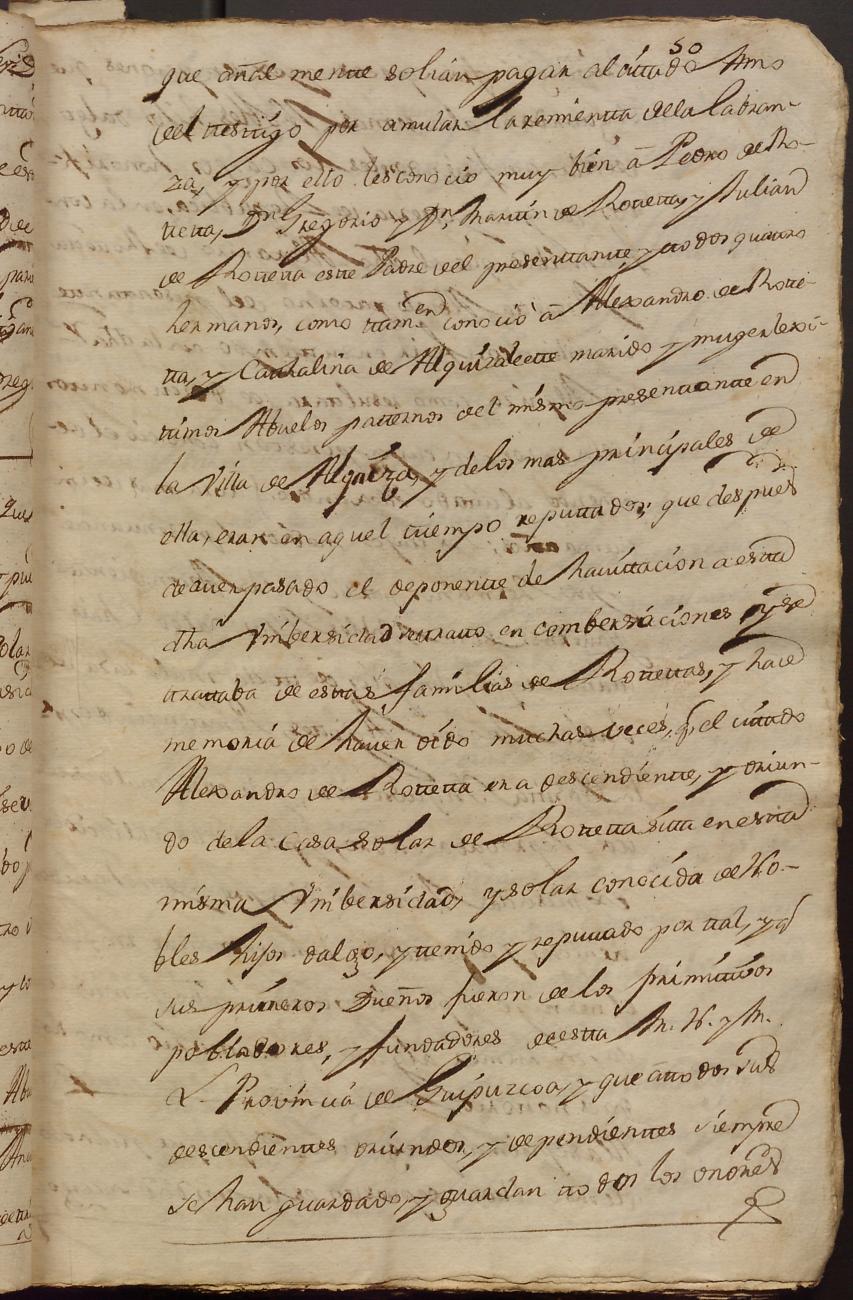 50
que añal mente solian pagar al cittado Amo
del testigo por amular la remientta de la labran-
za, y por ello les conocio muy bien â Pedro de Ro-
tetta, Dn Gregorio y Dn Martin de Rotetta, y Julian
de Rotetta este Padre del presenttante y todos quatro
hermanos, como ttamen conocio â Alexandro de Rotte-
tta, y Cathalina de Alquizalette marido y muger lexi-
timos Abuelos patternos del mismo presentante en
la Villa de Alquiza, y de los mas principales de
ella, eran en aquel tiempo reputtados; que despues
de aver pasado el deponente de havittacion a estta
dha Vnibersidad ttratto en combersaciones y se
trattaba de estas familias de Rottettas, y hace
memoria de haver oido muchas veces, q el cittado
Alexandro de Rottetta era descendiente, y oriun-
do de la Casa solar de Rottetta sitta en estta
misma Vnibersidad, y solar conocida de No-
bles hijos dalgo, y ttenido y reputtado por ttal, y q
sus primeros Dueños fueron de los primitivos
pobladores, y fundadores de estta M. N. y M.
L. Provincia de Guipuzcoa, y que a ttodos sus
descendienttes oriundos, y dependienttes siempre
se han guardado, y guardan ttodos los onores